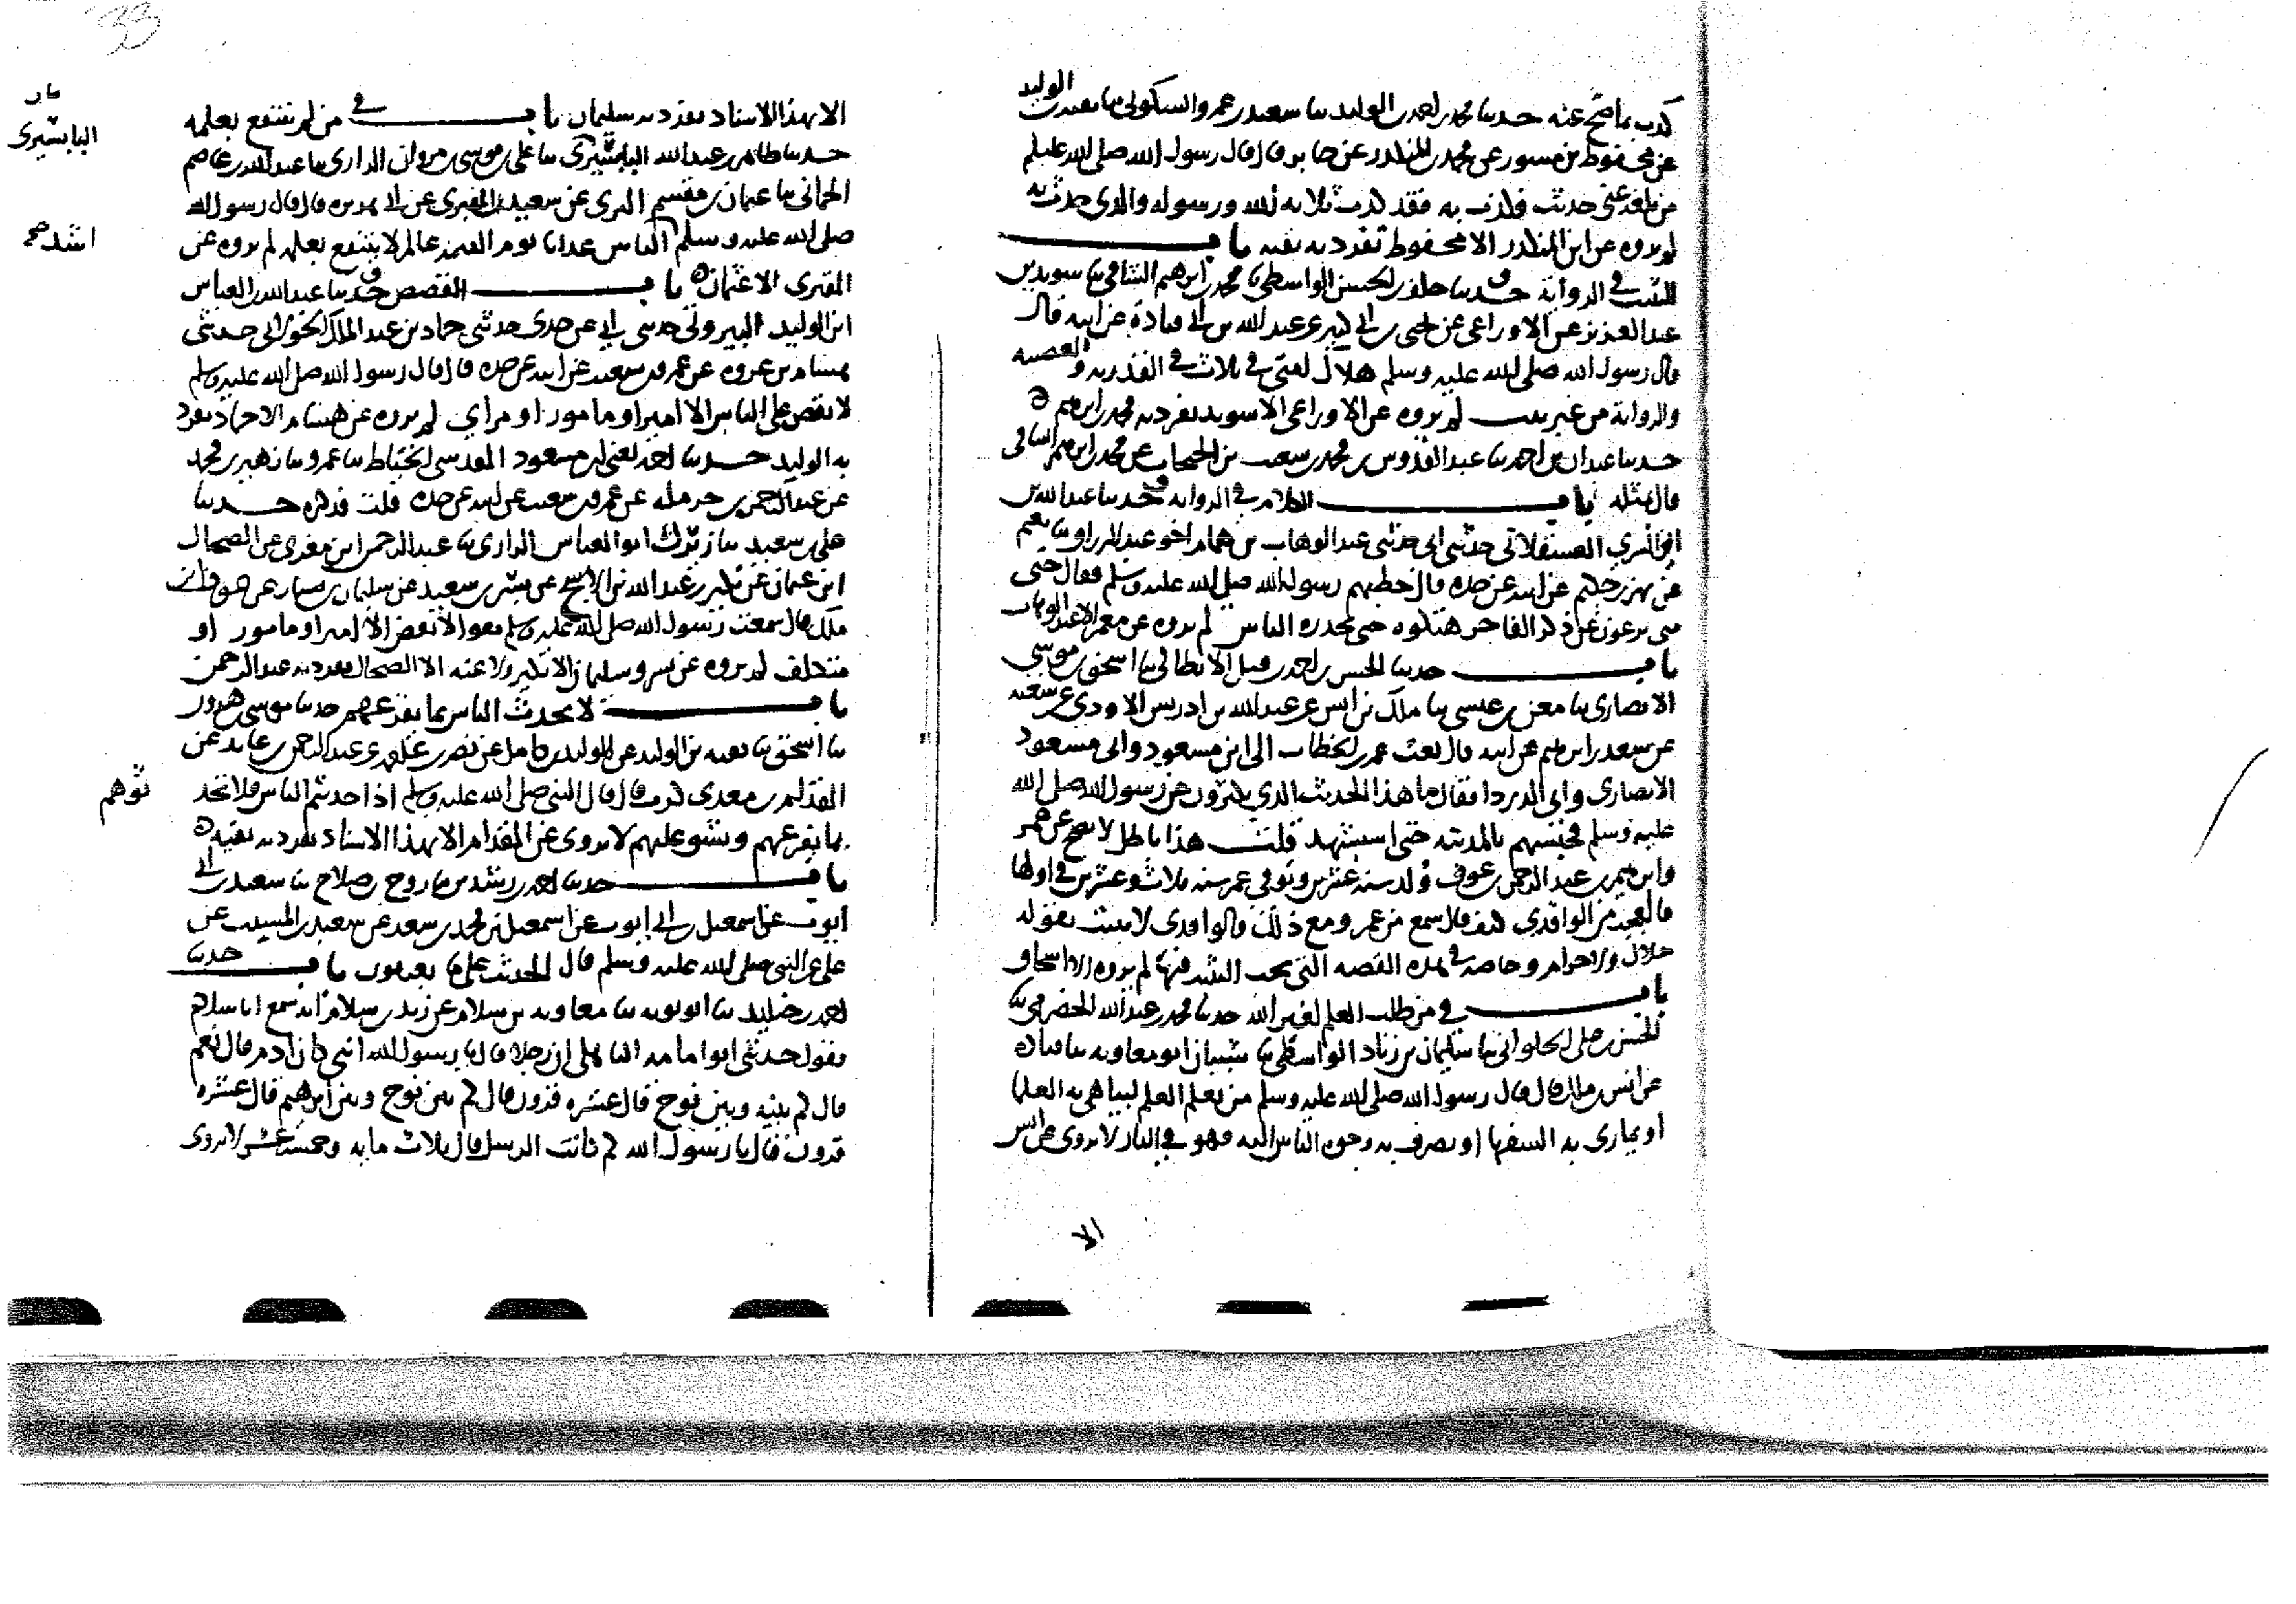 كذب بما صح عنه حدثنا محمد بن احمد بن الوليد ثنا سعيد بن عمرو السكوني ثنا بقية بن الوليد
عن محفوظ بن مسور عن محمد بن المنكدر عن جابر قال قال رسول الله صلى الله عليه وسلم
من بلغه عني حديث فكذب به فقد كذب ثلاثة الله ورسوله والذي حدث به
لم يروه عن ابن المنكدر الا محفوظ تفرد به بقية باب
التثبت في الرواية حدثنا خلف بن الحسن الواسطي ثنا محمد بن ابرهيم الشامي ثنا سويد بن
عبد العزيز عن الاوزاعي عن يحيى بن ابي كثير عن عبد الله بن ابي قتادة عن ابيه قال
قال رسول الله صلى الله عليه وسلم هلاك امتي في ثلاث في القدرية والعصبية
والرواية من غير ثبت لم يروه عن الاوزاعي الا سويد تفرد به محمد بن ابرهيم
حدثنا عبدان بن احمد ثنا عبد القدوس بن محمد بن شعيب بن الحبحاب عن محمد بن ابرهيم الشامي
قال مثله باب الكلام في الرواية حدثنا عبد الله بن
ابي السري العسقلاني حدثني ابي حدثني عبد الوهاب بن همام اخو عبد الرزاق ثنا معمر
عن بهز بن حكيم عن ابيه عن جده قال خطبهم رسول الله صلى الله عليه وسلم فقال حتى
متى ترعون عن ذكر الفاجر هتكوه حتى يحذره الناس لم يروه عن معمر الا عبد الوهاب
باب حدثنا الحسن بن احمد بن فيل الانطاكي ثنا اسحق بن موسى
الانصاري ثنا معن بن عيسى ثنا ملك بن انس عن عبد الله بن ادريس الاودي عن شعبة
عن سعد بن ابرهيم عن ابيه قال بعث عمر بن الخطاب الى ابن مسعود وابي مسعود
الانصاري وابي الدردا فقال ما هذا الحديث الذي تكثرون عن رسول الله صلى الله
عليه وسلم فحبسهم بالمدينة حتى استشهد قلت هذا باطل لا يصح عن عمر
وابرهيم بن عبد الرحمن بن عوف ولد سنة عشرين وتوفي عمر سنة ثلاث وعشرين في اولها
فالعجب من الواقدي كيف قال سمع من عمر ومع ذلك فالواقدي لا يثبت بقوله
حلال ولا حرام وخاصة في هذه القصة التي يجب التشدد فيها لم يروه الا اسحاق
باب في من طلب العلم لغير الله حدثنا محمد بن عبد الله الحضرمي ثنا
الحسن بن علي الحلواني ثنا سليمان بن زياد الواسطي ثنا شيبان ابو معاوية ثنا قتادة
عن انس بن ملك قال قال رسول الله صلى الله عليه وسلم من تعلم العلم ليباهي به العلما
او يماري به السفها او يصرف به وجوه الناس اليه فهو في النار لا يروى عن انس
الا
33
الا بهذا الاسناد تفرد به سليمان باب في من لم ينتفع بعلمه
حدثنا طاهر بن عبد الله البابسيري ثنا علي بن موسى بن مروان الرازي ثنا عبد الله بن عاصم
الحماني ثنا عثمان بن مقسم البري عن سعيد المقبري عن ابي هريرة قال قال رسول الله
صلى الله عليه وسلم الناس عذابا يوم القيمة عالم لا ينتفع بعلمه لم يروه عن
المقبري الا عثمان باب القصص حدثنا عبد الله بن العباس
ابن الوليد البيروتي حدثني ابي عن جدي حدثني حماد بن عبد الملك الخولاني حدثني
هشام بن عروة عن عمرو بن شعيب عن ابيه عن جده قال قال رسول الله صلى الله عليه وسلم
لا يقص على الناس الا امير او مامور او مراي لم يروه عن هشام الا حماد تفرد
به الوليد حدثنا احمد يعني ابن مسعود المقدسي الخياط ثنا عمرو ثنا زهير بن محمد
عن عبد الرحمن بن حرملة عن عمرو بن شعيب عن ابيه عن جده قلت فذكره حدثنا
علي بن سعيد ثنا زنترك ابو العباس الرازي ثنا عبد الرحمن بن مغرى عن الضحاك
ابن عثمان عن بكير بن عبد الله بن الاشج عن بسر بن سعيد عن سليمان بن يسار عن عوف بن
ملك قال سمعت رسول الله صلى الله عليه وسلم يقول لا يقص الا امير او مامور او
متكلف لم يروه عن بسر وسليمان الا بكير ولا عنه الا الضحاك تفرد به عبد الرحمن
باب لا يحدث الناس بما يفزعهم حدثنا موسى بن هرون
ثنا اسحق ثنا بقية بن الوليد عن الوليد بن كامل عن نصر بن علقمة عن عبد الرحمن بن عايذ عن
المقدام بن معدي كرب قال قال النبي صلى الله عليه وسلم اذا حدثتم الناس فلا تحد
بما يفزعهم ويشق عليهم لا يروى عن المقدام الا بهذا الاسناد تفرد به بقية
باب حدثنا احمد بن رشدين ثنا روح بن صلاح ثنا سعيد بن ابي
ايوب عن اسمعيل بن ابي ايوب عن اسمعيل بن محمد بن سعد عن سعيد بن المسيب عن
علي عن النبي صلى الله عليه وسلم قال الحديث عني ما تعرفون باب حدثنا
احمد بن خليد ثنا ابو توبة ثنا معاوية بن سلام عن زيد بن سلام انه سمع ابا سلام
يقول حدثني ابو امامة الباهلي ان رجلا قال يا رسول الله انبي كان ادم قال نعم
قال كم بينه وبين نوح قال عشرة قرون قال كم بين نوح وبين ابرهيم قال عشرة
قرون قال يا رسول الله كم كانت الرسل قال ثلاث ماية وخمسة عشر لا يروى
البابسيري
اشد صح
ثوهم